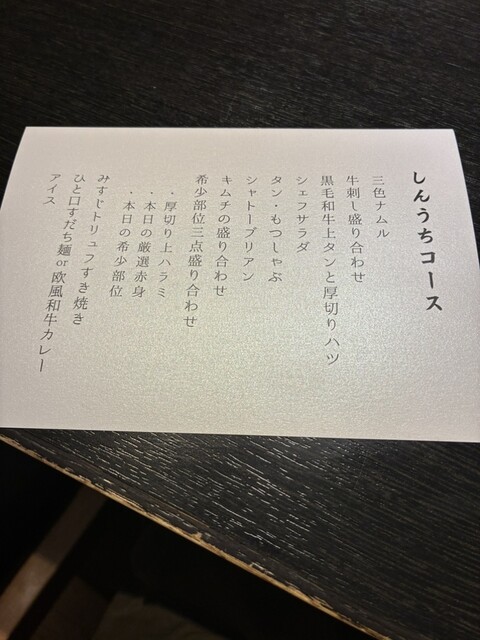 しんうちコース
三色ナムル
牛刺し盛り合わせ
黒毛和牛上タンと厚切りハツ
シェフサラダ
タン・もつしゃぶ
シャトーブリアン
キムチの盛り合わせ
希少部位三点盛り合わせ
・厚切り上ハラミ
・本日の厳選赤身
・本日の希少部位
みすじトリュフすき焼き
ひと口すだち麺or欧風和牛カレー
アイス